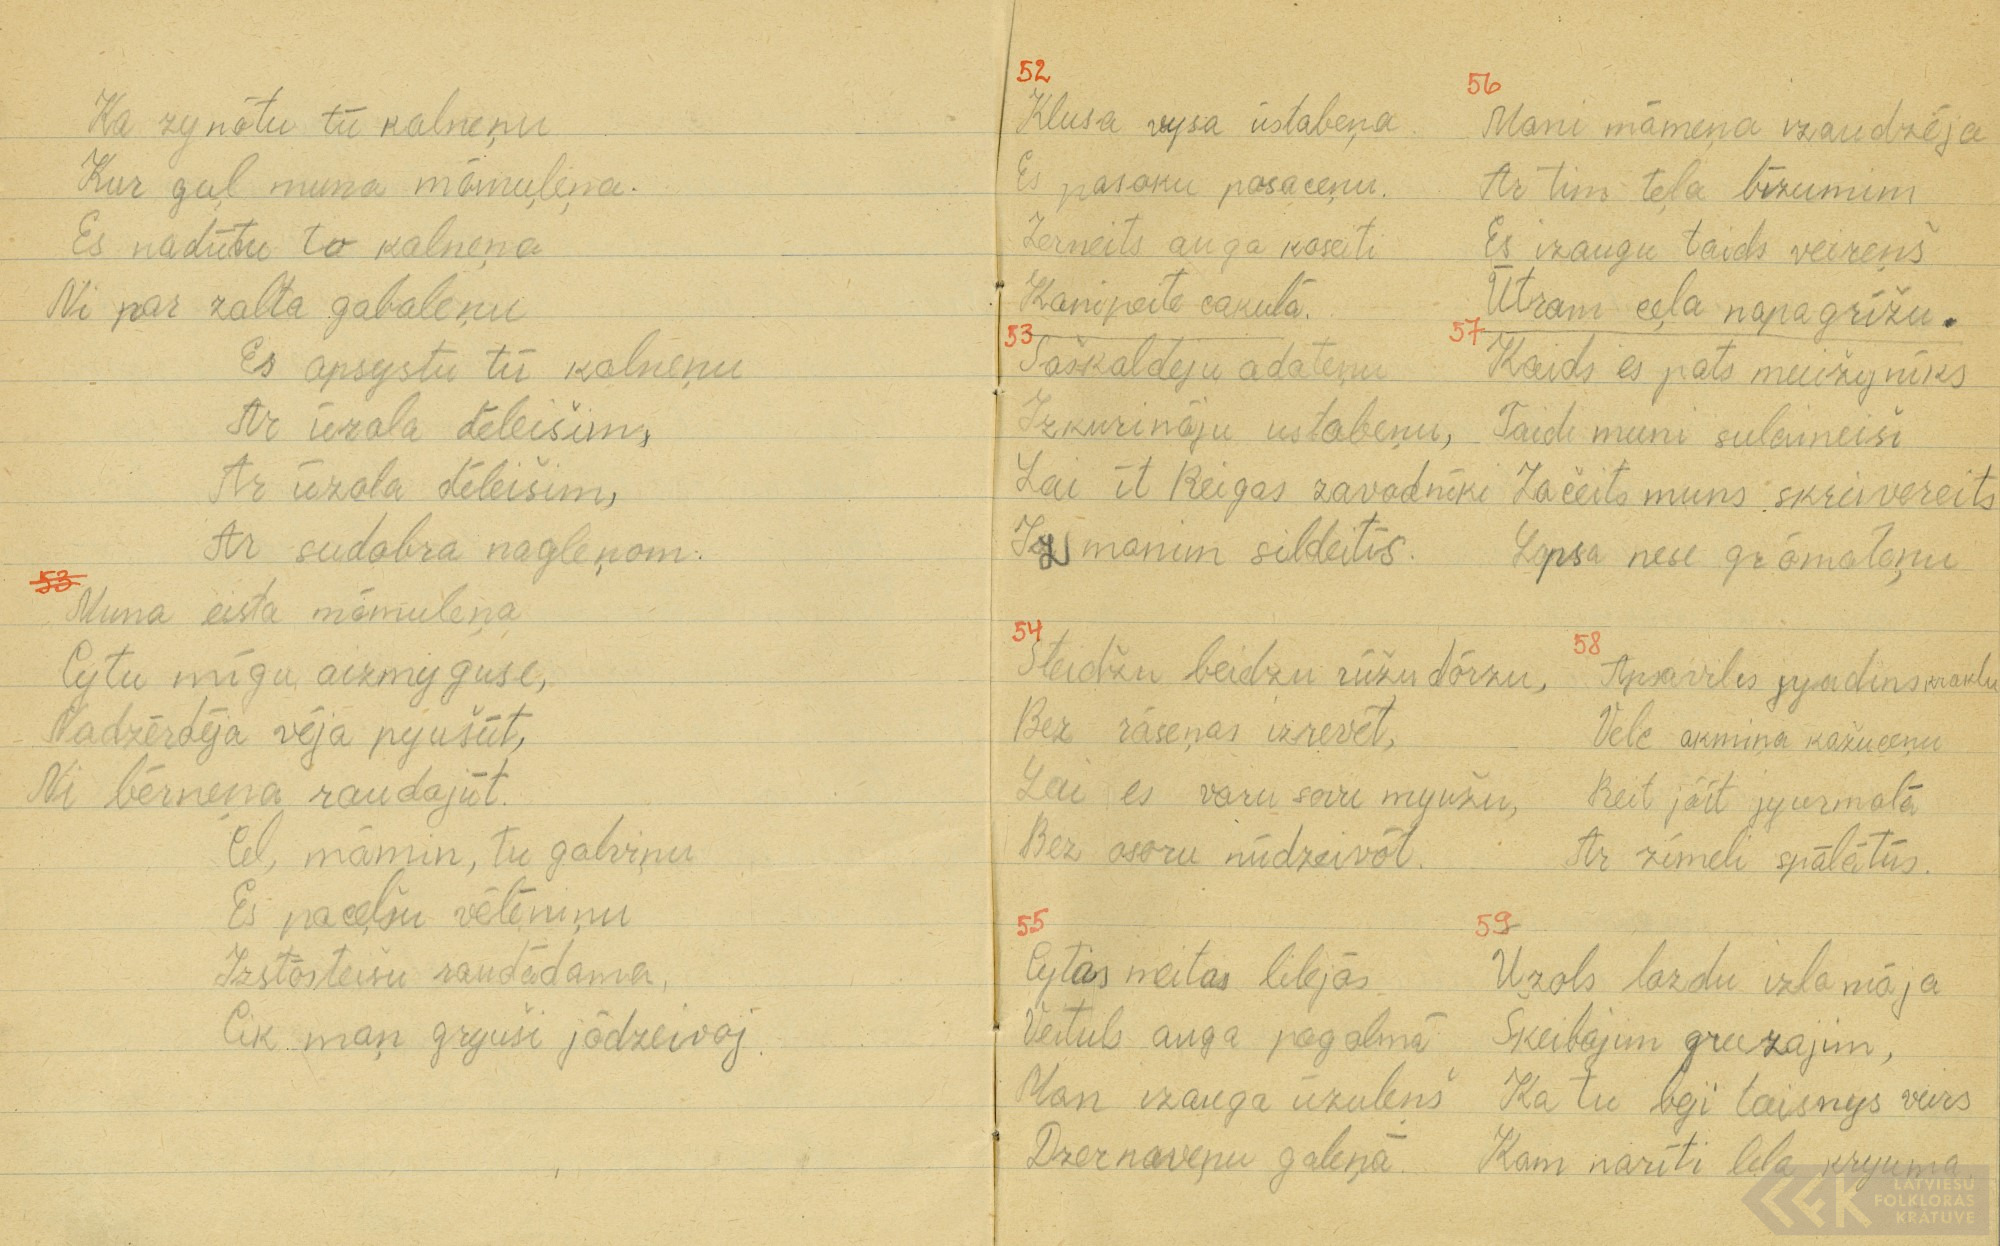 Ka zynōtu tū kalneņu
Kur guļ muna mōmuļeņa.
Es nadūtu to kalneņa
Ni par zalta gabaleņu
Es apsystu tū kalneņu
Ar ūzola dēleišim,
Ar ūzola dēleišim,
Ar sudobra nagleņom.
53
Muna eista mōmuleņa
Cytu mīgu aizmyguse,
Nadzērdēja vēja pyušūt,
Ni bērneņa raudojūt.
Cel, māmin, tu galviņu
Es pacelšu vēlēniņu
Izstōsteišu raudādama,
Cik maņ gryuši jōdzeivoj.
52
Klusa vysa ūstabeņa
Es pasaku pasaceņu.
Zerneits auga kaseiti
Kanipeite cakulā.
53
Saškaldeju adateņu
Izkurinōju ustabeņu,
Lai īt Reigas zavodnīki
Iz manim sildeitīs.
54
Steidžu beidzu rūžu dōrzu,
Bez rāseņas izrevēt,
Lai es varu sovu myužu,
Bez osoru nūdzeivōt.
55
Cytas meitas lilejās
Veituls auga pagolmā
Man izauga ūzuleņš
Dzernaveņu galeņā.
56
Mani māmeņa izaudzēja
Ar tim teļa bīzumim
Es izaugu taids veireņš
Ūtram ceļa napagrīžu.
57
Kaids es pats muižynīks
Taidi muni sulaineiši
Začeits muns skrīvereits
Lapsa nese grōmateņu
58
Apsavilcs yudins kraklu
Vele akmiņa kažuceņu
Reit jōit jyurmolā
Ar zīmeli spālātūs.
59
Uzols lazdu izlamōja
Škeibajim gruzajim,
Ka tu beji taisnys veirs
Kam narīti lela kryuma
LATVIEŠU
FOLKLORAS
KRĀTUVE